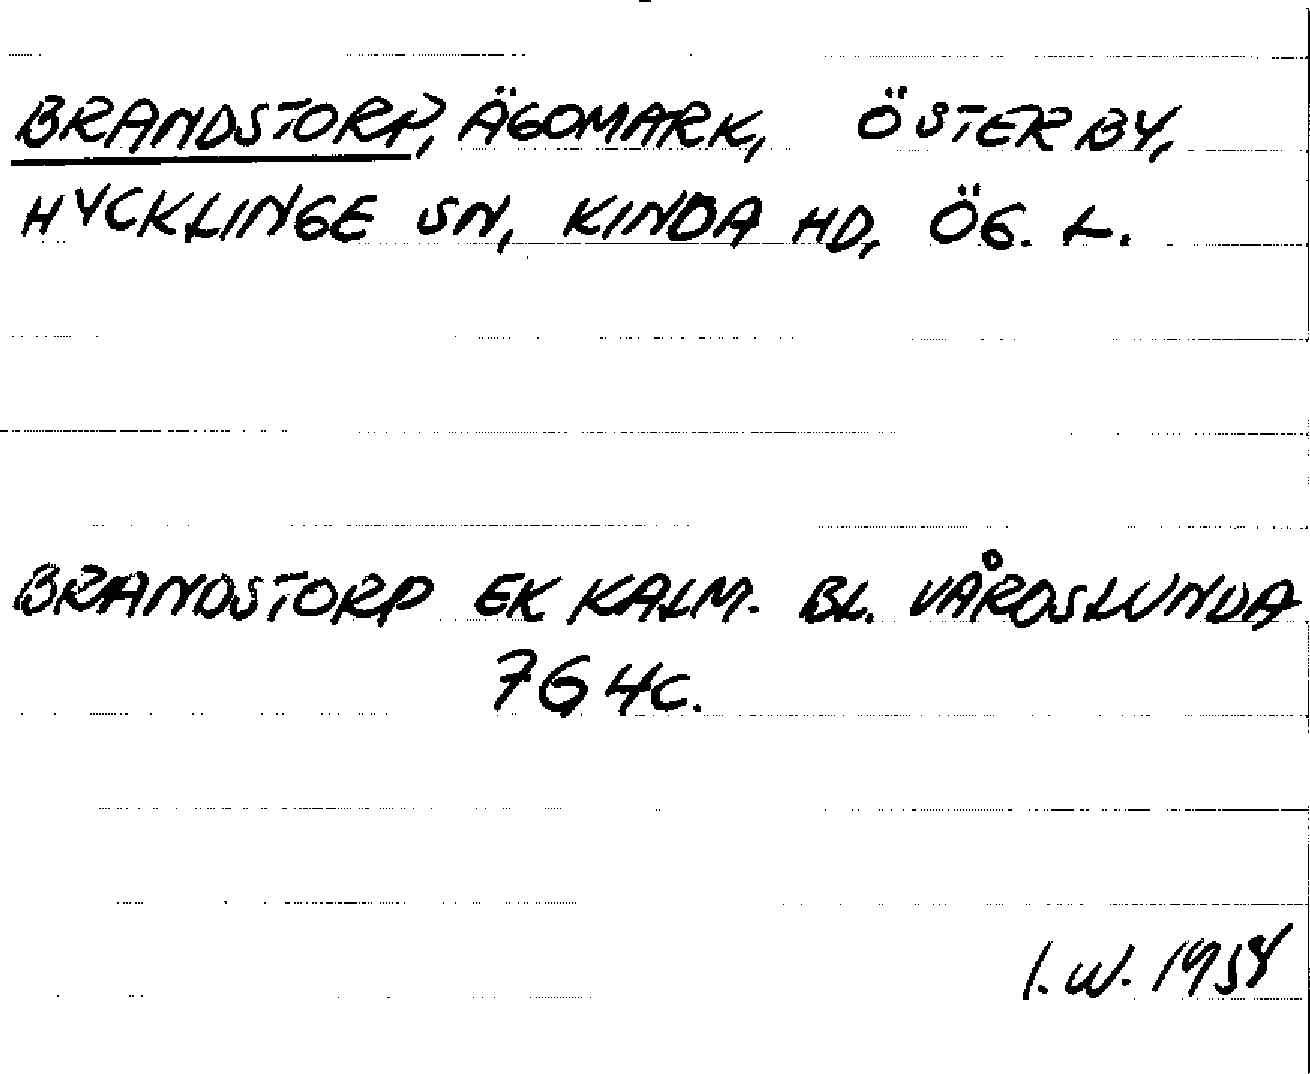 BRANDSTORP, ÄGOMARK, ÖSTERBY,
HYCKLINGE SN, KINDA HD, ÖG. L.
BRANDSTORP EK KALM. BL. VÅRDSLUNDA
7G 4c.
I.W. 1958